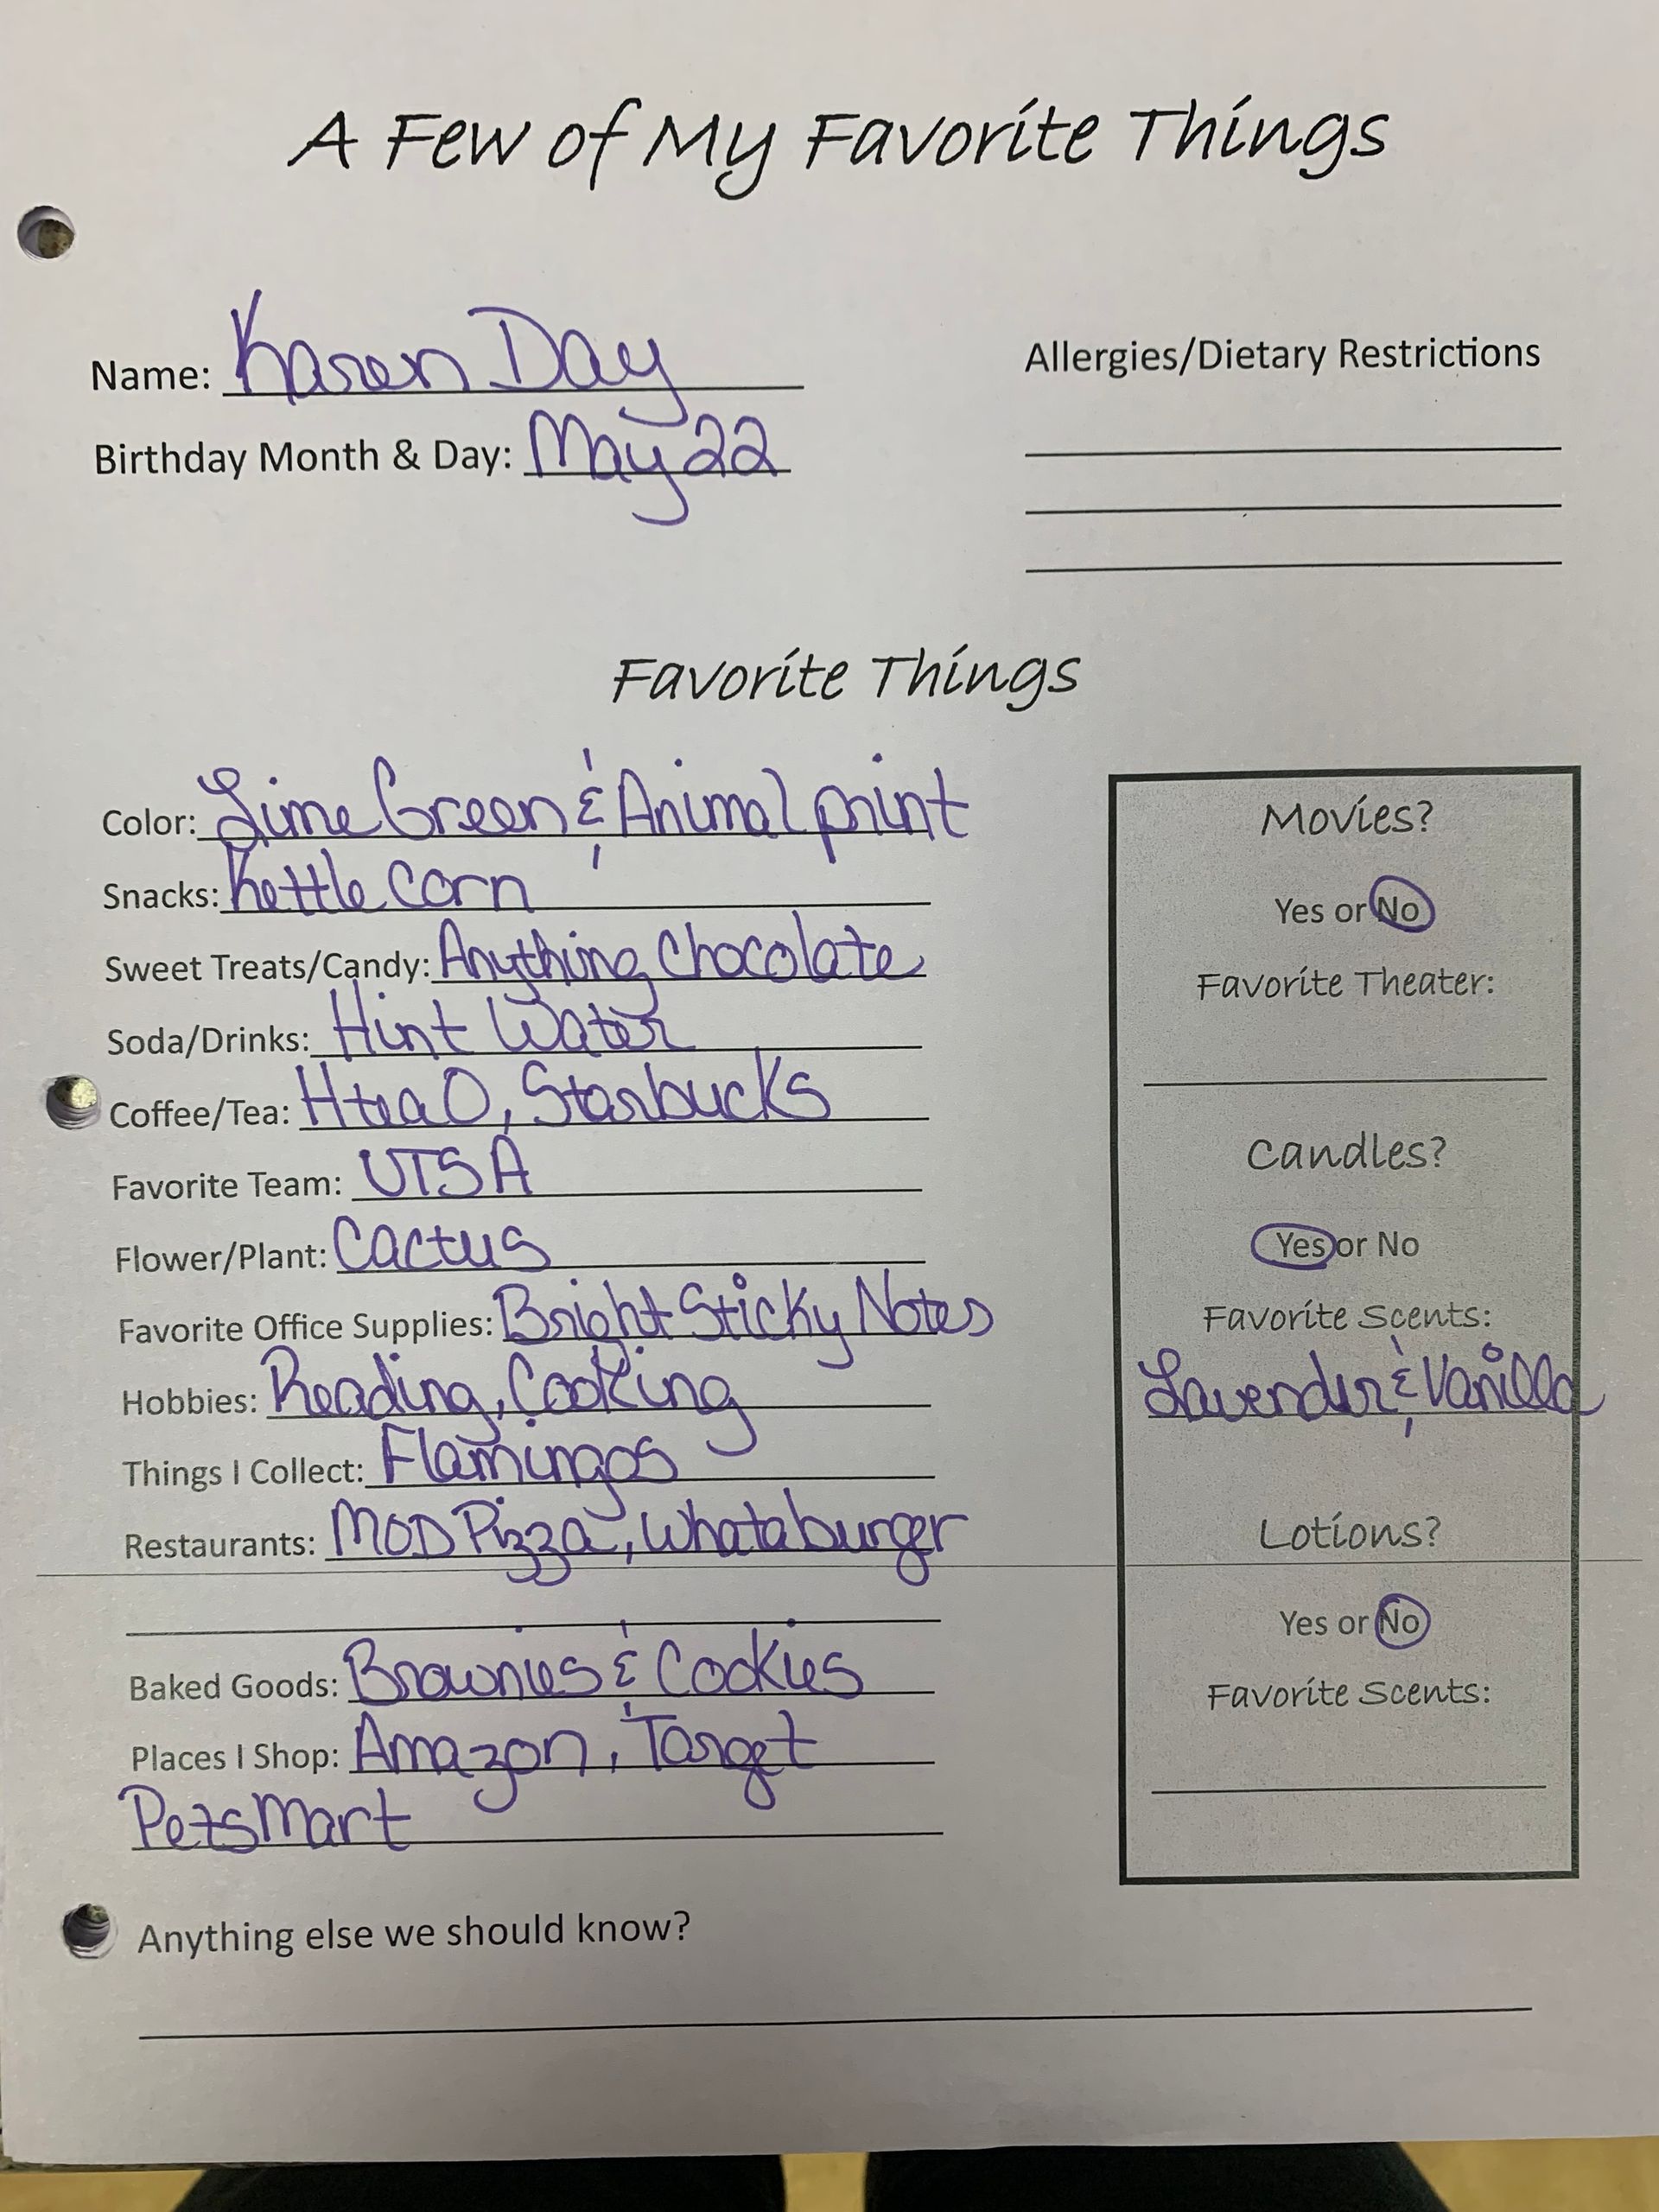 A Few of My Favorite Things
Name: Karen Day
Birthday Month & Day: May 22
Allergies/Dietary Restrictions
Favorite Things
Color: Lime Green & Animal print
Snacks: Kettle Corn
Sweet Treats/Candy: Anything Chocolate
Soda/Drinks: Hint Water
Coffee/Tea: HteaO, Starbucks
Favorite Team: UTSA
Flower/Plant: Cactus
Favorite Office Supplies: Bright Sticky Notes
Hobbies: Reading, Cooking
Things I Collect: Flamingos
Restaurants: MOD Pizza, Whataburger
Baked Goods: Brownies & Cookies
Places I Shop: Amazon, Target
PetsMart
Movies?
Yes or No
Favorite Theater:
Candles?
Yes or No
Favorite Scents:
Lavender & Vanilla
Lotions?
Yes or No
Favorite Scents:
Anything else we should know?